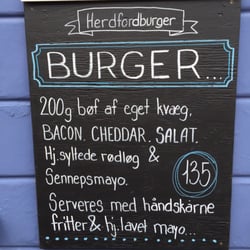 Herdfordburger
BURGER...
200g bøf af eget kvæg,
BACON, CHEDDAR, SALAT,
Hj.syltede rødløg &
Sennepsmayo.
135
Serveres med håndskårne
fritter & hj.lavet mayo...